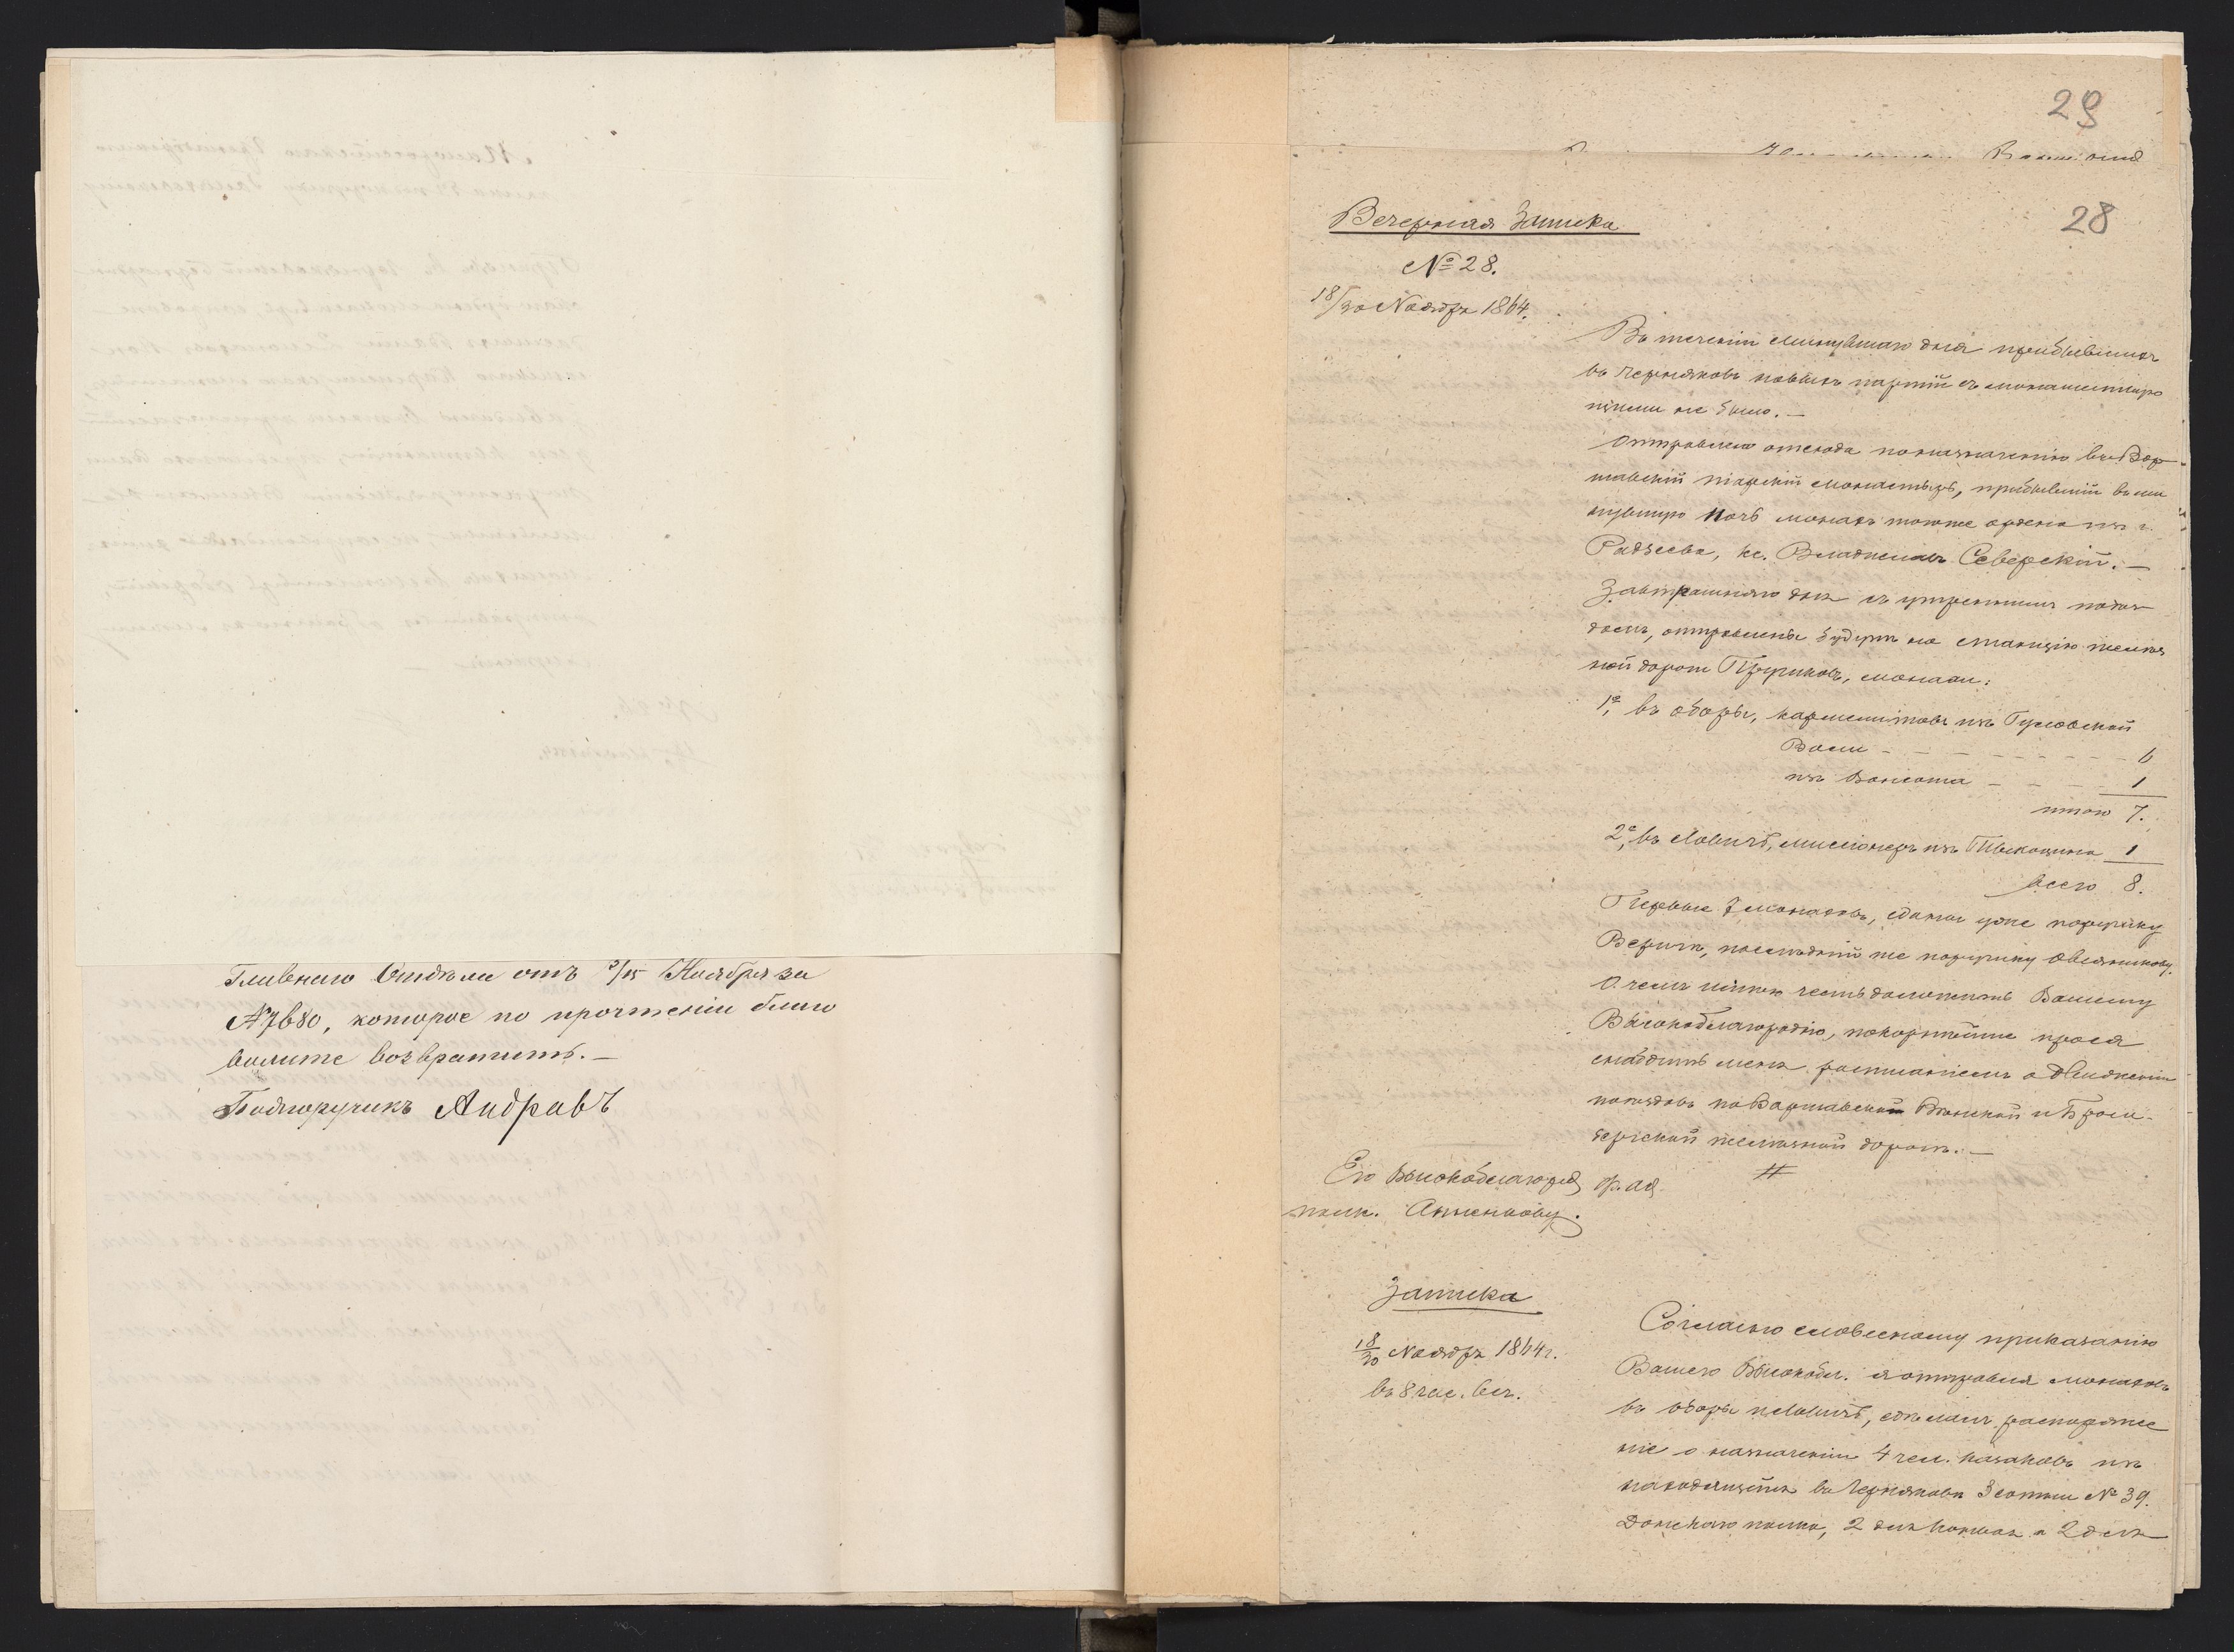 Главнаго Отдѣла отъ 3/15 Ноября за
№ 7680, которое по прочтеніи благо
волите возвратить. —
Подпоручикъ
29
28
Вечерняя Записка
№ 28.
18/30 Ноября 1864.
Въ теченіи минувшаго дня прибывшихъ
въ Черняковъ новыхъ партій съ монашествую
щими не было. —
Отправленъ отсюда по назначенію въ Вар-
шавскій піарскій монастырь, прибывшій въ ми
нувшую ночь монахъ тогоже ордена изъ г.
Радзеева, кс. Владиславъ Северскій. —
Завтрашняго дня съ утреннимъ поѣз-
домъ, отправлены будутъ на станцію желѣз
ной дороги Прушковъ, монахи:
1е, въ Оборы, кармелитовъ изъ Гуловской
Воли - - - - - - - 6
изъ - - - 1
итого 7.
2е, въ Ловичъ, миссіонеръ изъ Тыкоцина 1
всего 8.
Первые 7 монаховъ, сданы уже поручику
Веригѣ, послѣдній же поручику Овсяникову.
О чемъ имѣю честь доложить Вашему
Высокоблагородію, покорнѣйше прося
снабдить меня росписаніемъ о движеніи
поѣздовъ по Варшавской Вѣнской и Бром-
бергской желѣзной дорогѣ. —
Его Высокоблагородію
полк. Анненкову.
Записка
18/30 Ноября 1864 г.
въ 8 час. веч.
Согласно словесному приказанію
Вашего Высокобл. отправляя монаховъ
въ Оборы и Ловичъ, сдѣлалъ распоряже
ніе о назначеніи 4 чел. казаковъ изъ
находящейся въ Черняковѣ 3 сотни № 39.
Донскаго полка, 2 для и 2 для